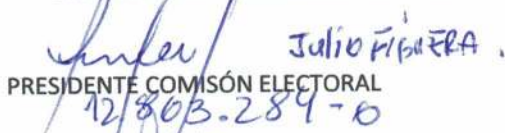 Julio FiguERA.
PRESIDENTE COMISÓN ELECTORAL
12/803.289-0